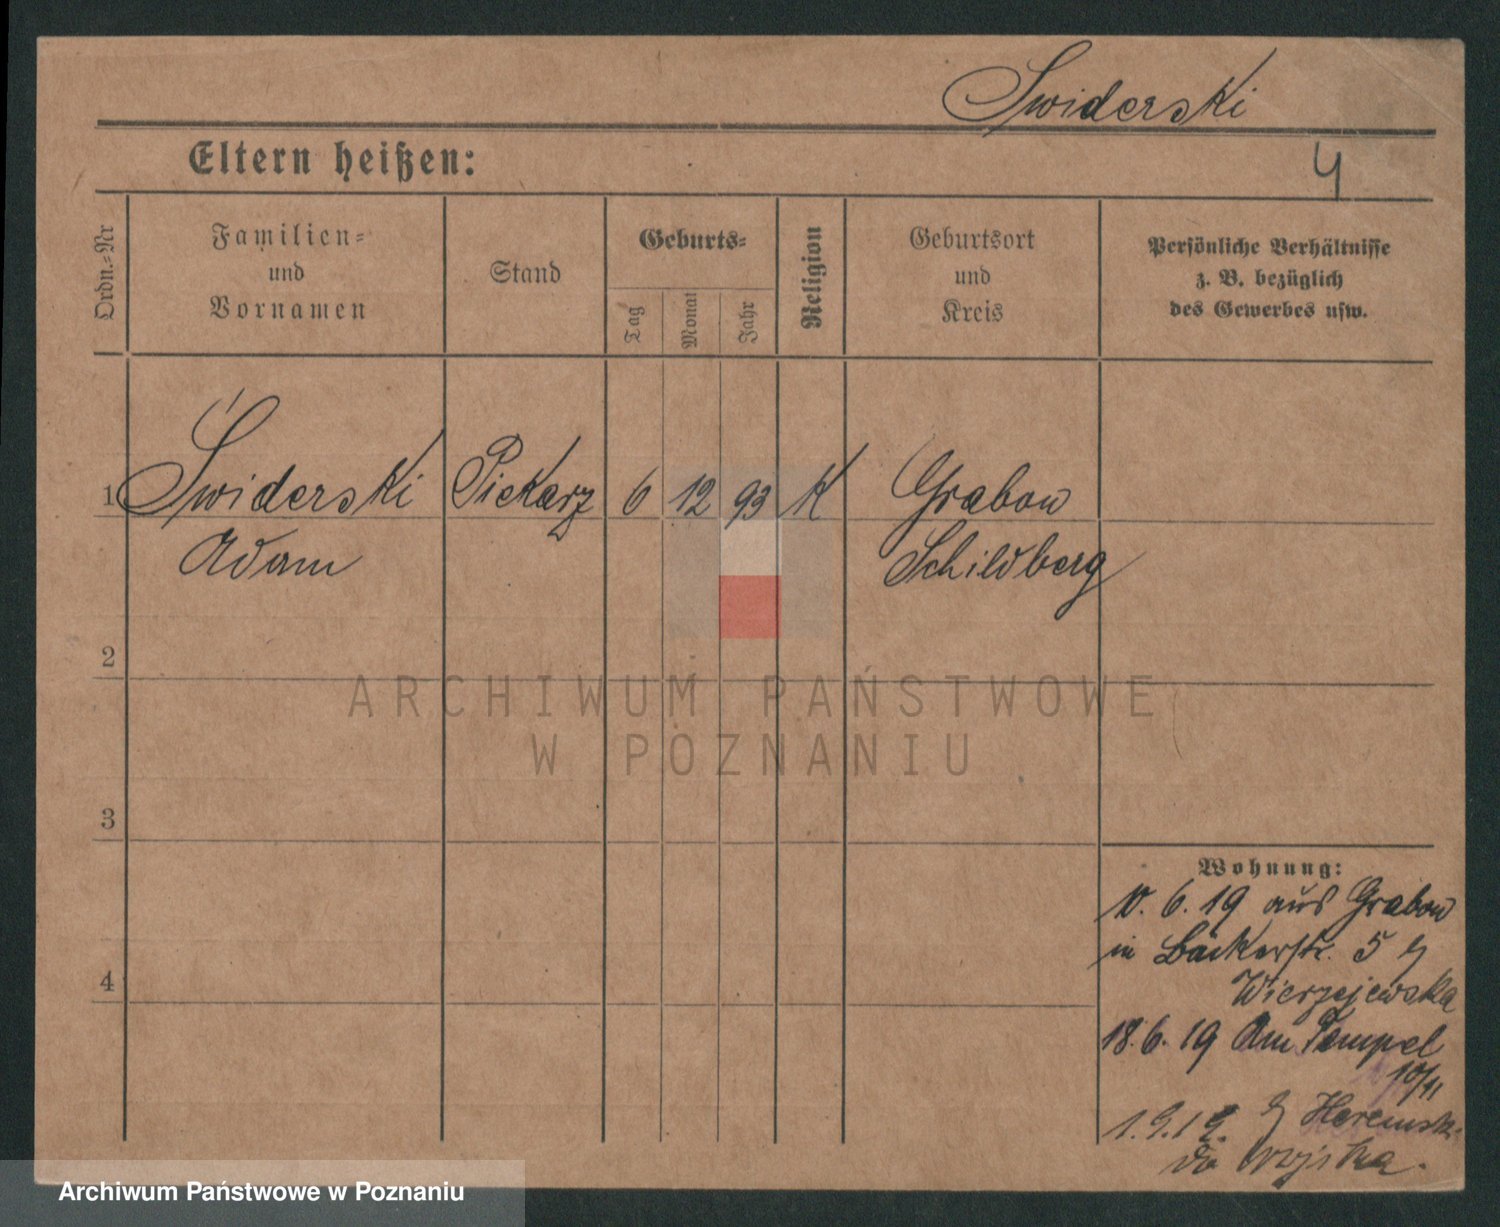 Swiderski
Eltern heißen:
4
Ordn.-Nr
Familien-
und
Vornamen
Stand
Geburts-
Tag
Monat
Jahr
Religion
Geburtsort
und
Kreis
Persönliche Verhältnisse
z. B. bezüglich
des Gewerbes usw.
1 Świderski Piekarz 6 12 93 K Grabow
Adam Schildberg
2
ARCHIWUM PAŃSTWOWE
W POZNANIU
3
Wohnung:
10. 6. 19 aus Grabow
in Bäckerstr. 5 bei
Wierzejewska
4
18. 6. 19 Am Tempel
10/11
1.9.19.
do wojska.
Archiwum Państwowe w Poznaniu